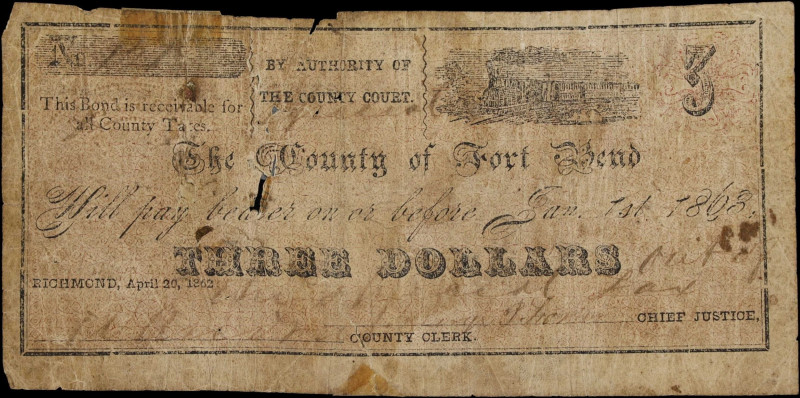 No
BY AUTHORITY OF
THE COUNTY COURT.
3
This Bond is receivable for
all County Taxes.
The County of Fort Bend
Will pay bearer on or before Jan. 1st. 1863.
THREE DOLLARS
out of
RICHMOND, April 20, 1862
Tax
CHIEF JUSTICE,
COUNTY CLERK.